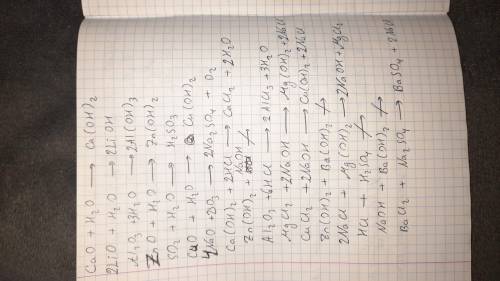 CaO + H2O → Ca(OH)2
2LiO + H2O → 2LiOH
Al2O3 + 3H2O → 2Al(OH)3
ZnO + H2O → Zn(OH)2
SO2 + H2O → H2SO3
CuO + H2O → Cu(OH)2
4NaO + 2SO3 → 2Na2SO4 + O2
Ca(OH)2 + 2HCl → CaCl2 + 2H2O
Zn(OH)2 + NaOH ↛
Al2O3 + 6HCl → 2AlCl3 + 3H2O
MgCl2 + 2NaOH → Mg(OH)2 + 2NaCl
CuCl2 + 2NaOH → Cu(OH)2 + 2NaCl
Zn(OH)2 + Ba(OH)2 ↛
2NaCl + Mg(OH)2 → 2NaOH + MgCl2
HCl + H2SO4 ↛
NaOH + Ba(OH)2 ↛
BaCl2 + Na2SO4 → BaSO4 + 2NaCl